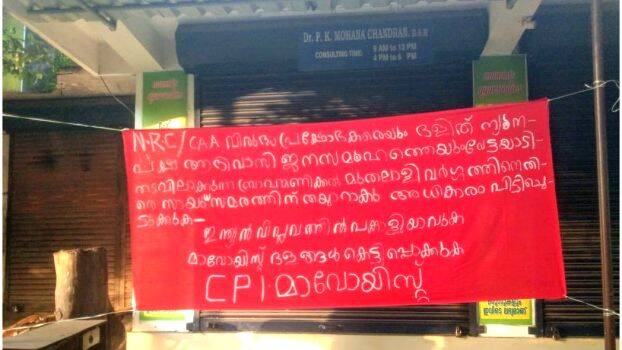 Dr. P. K. MOHANA CHANDRAN. B.A.M
CONSULTING TIME: 9 AM to 12 PM
4 PM to 6 PM
N-R-C/CAA വിരുദ്ധ പ്രക്ഷോഭകരെയും ദളിത് ന്യൂന-
പക്ഷ ആദിവാസി ജനസമൂഹത്തെയും വേട്ടയാടി
തടവിലാക്കുന്ന ബ്രാഹ്മണിക്കൽ മുതലാളി വർഗ്ഗത്തിനെതി-
രെ സായുധസമരത്തിന് തയ്യാറാകുക അധികാരം പിടിച്ചെ-
ടുക്കുക-
ഇന്ത്യൻ വിപ്ലവത്തിൻ പങ്കാളിയാവുക
മാവോയിസ്റ്റ് ദളങ്ങൾ കെട്ടിപ്പൊക്കുക
CPI മാവോയിസ്റ്റ്
ഇവിടെ ലഭ്യമാണ്